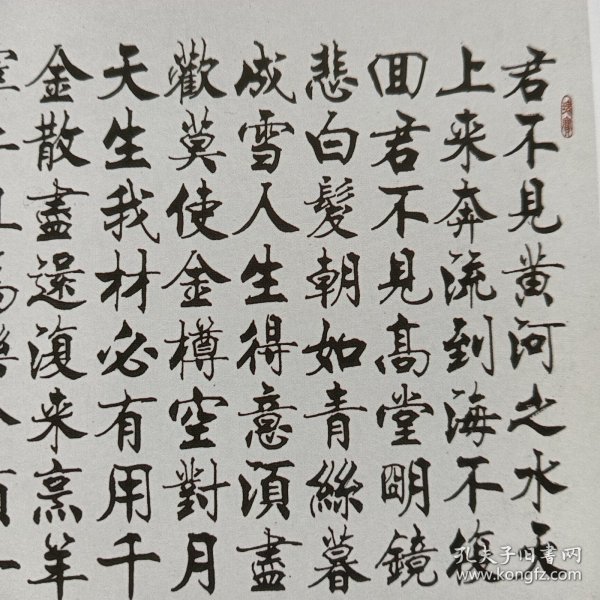 君不見黄河之水天
上来奔流到海不復
囬君不見髙堂朙鏡
悲白髮朝如青絲暮
成雪人生得意須盡
歡莫使金樽空對月
天生我材必有用千
金散盡還復来烹羊
孔夫子旧书网
www.kongfz.com